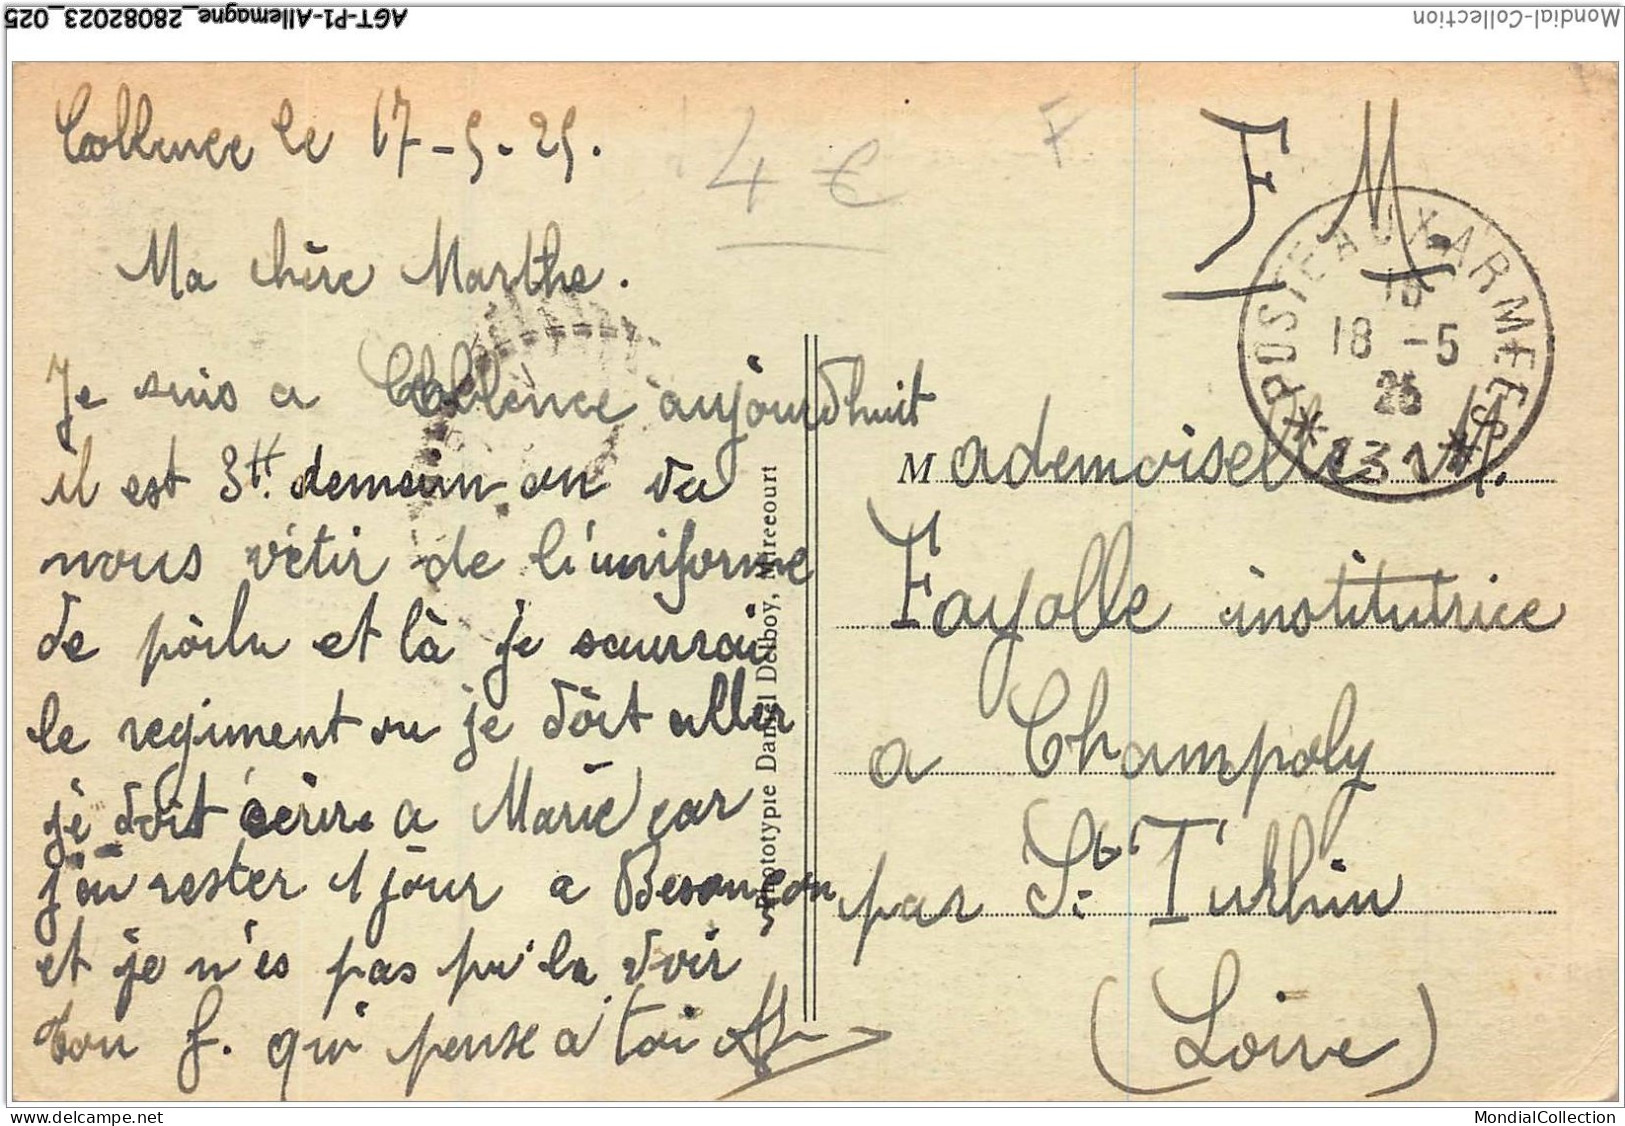 AGT-P1-Allemagne_28082023_025
Mondial-Collection
Coblence le 17-5-25.
4 €
F
F M
Ma chère Marthe.
Je suis a Coblence aujourdhuit
il est 3H. demain on va
nous vêtir de l'uniforme
de pôilu et là je saurrai
le regiment ou je dôit aller
je doit écrire a Marie car
j'ai rester 1 jour a Besançon
et je n'es pas pu la voir
ton f. qui pense a toi
Phototypie Daniel Delboy, Mirecourt
POSTE AUX ARMEES
18 -5
25
* 131 *
Mademoiselle M.
Fayolle institutrice
a Champoly
par St Turbin
(Loire)
MondialCollection